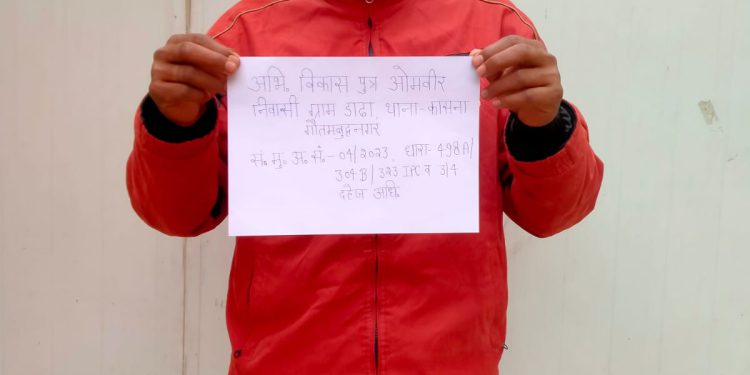 अभि. विकास पुत्र ओमवीर
निवासी ग्राम डाढा, थाना-कासना
गौतमबुद्धनगर
सं. मु. अ. सं. - 04/2023, धारा- 498A/
304B/323 IPC व 3/4
दहेज अधि.